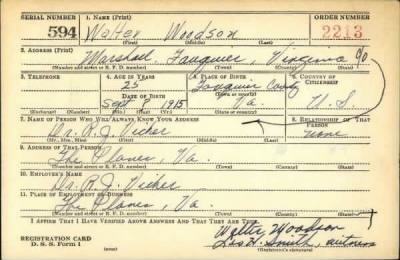 SERIAL NUMBER 1. NAME (Print) ORDER NUMBER
594 Walter Woodson 2213
(First) (Middle) (Last)
2. ADDRESS (Print)
Marshall, Fauquier, Virginia c/o
(Number and street or R. F. D. number) (Town) (County) (State)
3. TELEPHONE 4. AGE IN YEARS 5. PLACE OF BIRTH 6. COUNTRY OF CITIZENSHIP
25 Fauquier County
DATE OF BIRTH (Town or county)
Sept 8 1915 Va. U. S.
(Exchange) (Number) (Mo.) (Day) (Yr.) (State or country)
7. NAME OF PERSON WHO WILL ALWAYS KNOW YOUR ADDRESS 8. RELATIONSHIP OF THAT PERSON
Dr. R. J. none
(Mr., Mrs., Miss) (First) (Middle) (Last)
9. ADDRESS OF THAT PERSON
The Plains, Va.
(Number and street or R. F. D. number) (Town) (County) (State)
10. EMPLOYER'S NAME
Dr. R. J.
11. PLACE OF EMPLOYMENT OR BUSINESS
The Plains, Va.
(Number and street or R. F. D. number) (Town) (County) (State)
I AFFIRM THAT I HAVE VERIFIED ABOVE ANSWERS AND THAT THEY ARE TRUE.
Walter Woodson
REGISTRATION CARD Smith, witness
D. S. S. Form 1 (Registrant's signature)